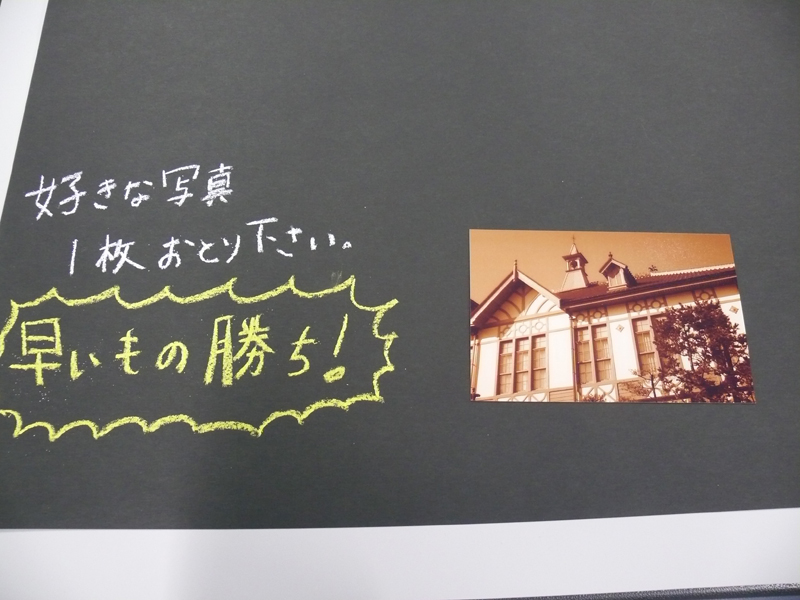 好きな写真
1枚おとり下さい。
早いもの勝ち!